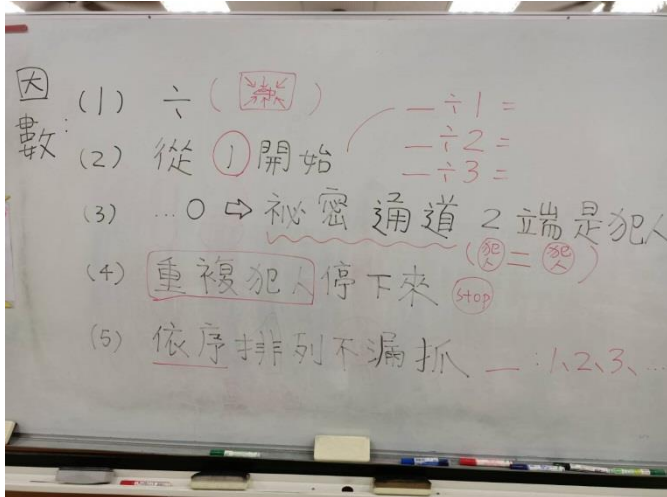 因數:
(1) ÷ ( )
_÷1=
_÷2=
_÷3=
(2) 從①開始
(3) …0 ⇨ 祕密通道 2端是犯人
(犯人=犯人)
(4) 重複犯人停下來 stop
(5) 依序排列不漏抓 _:1、2、3、…